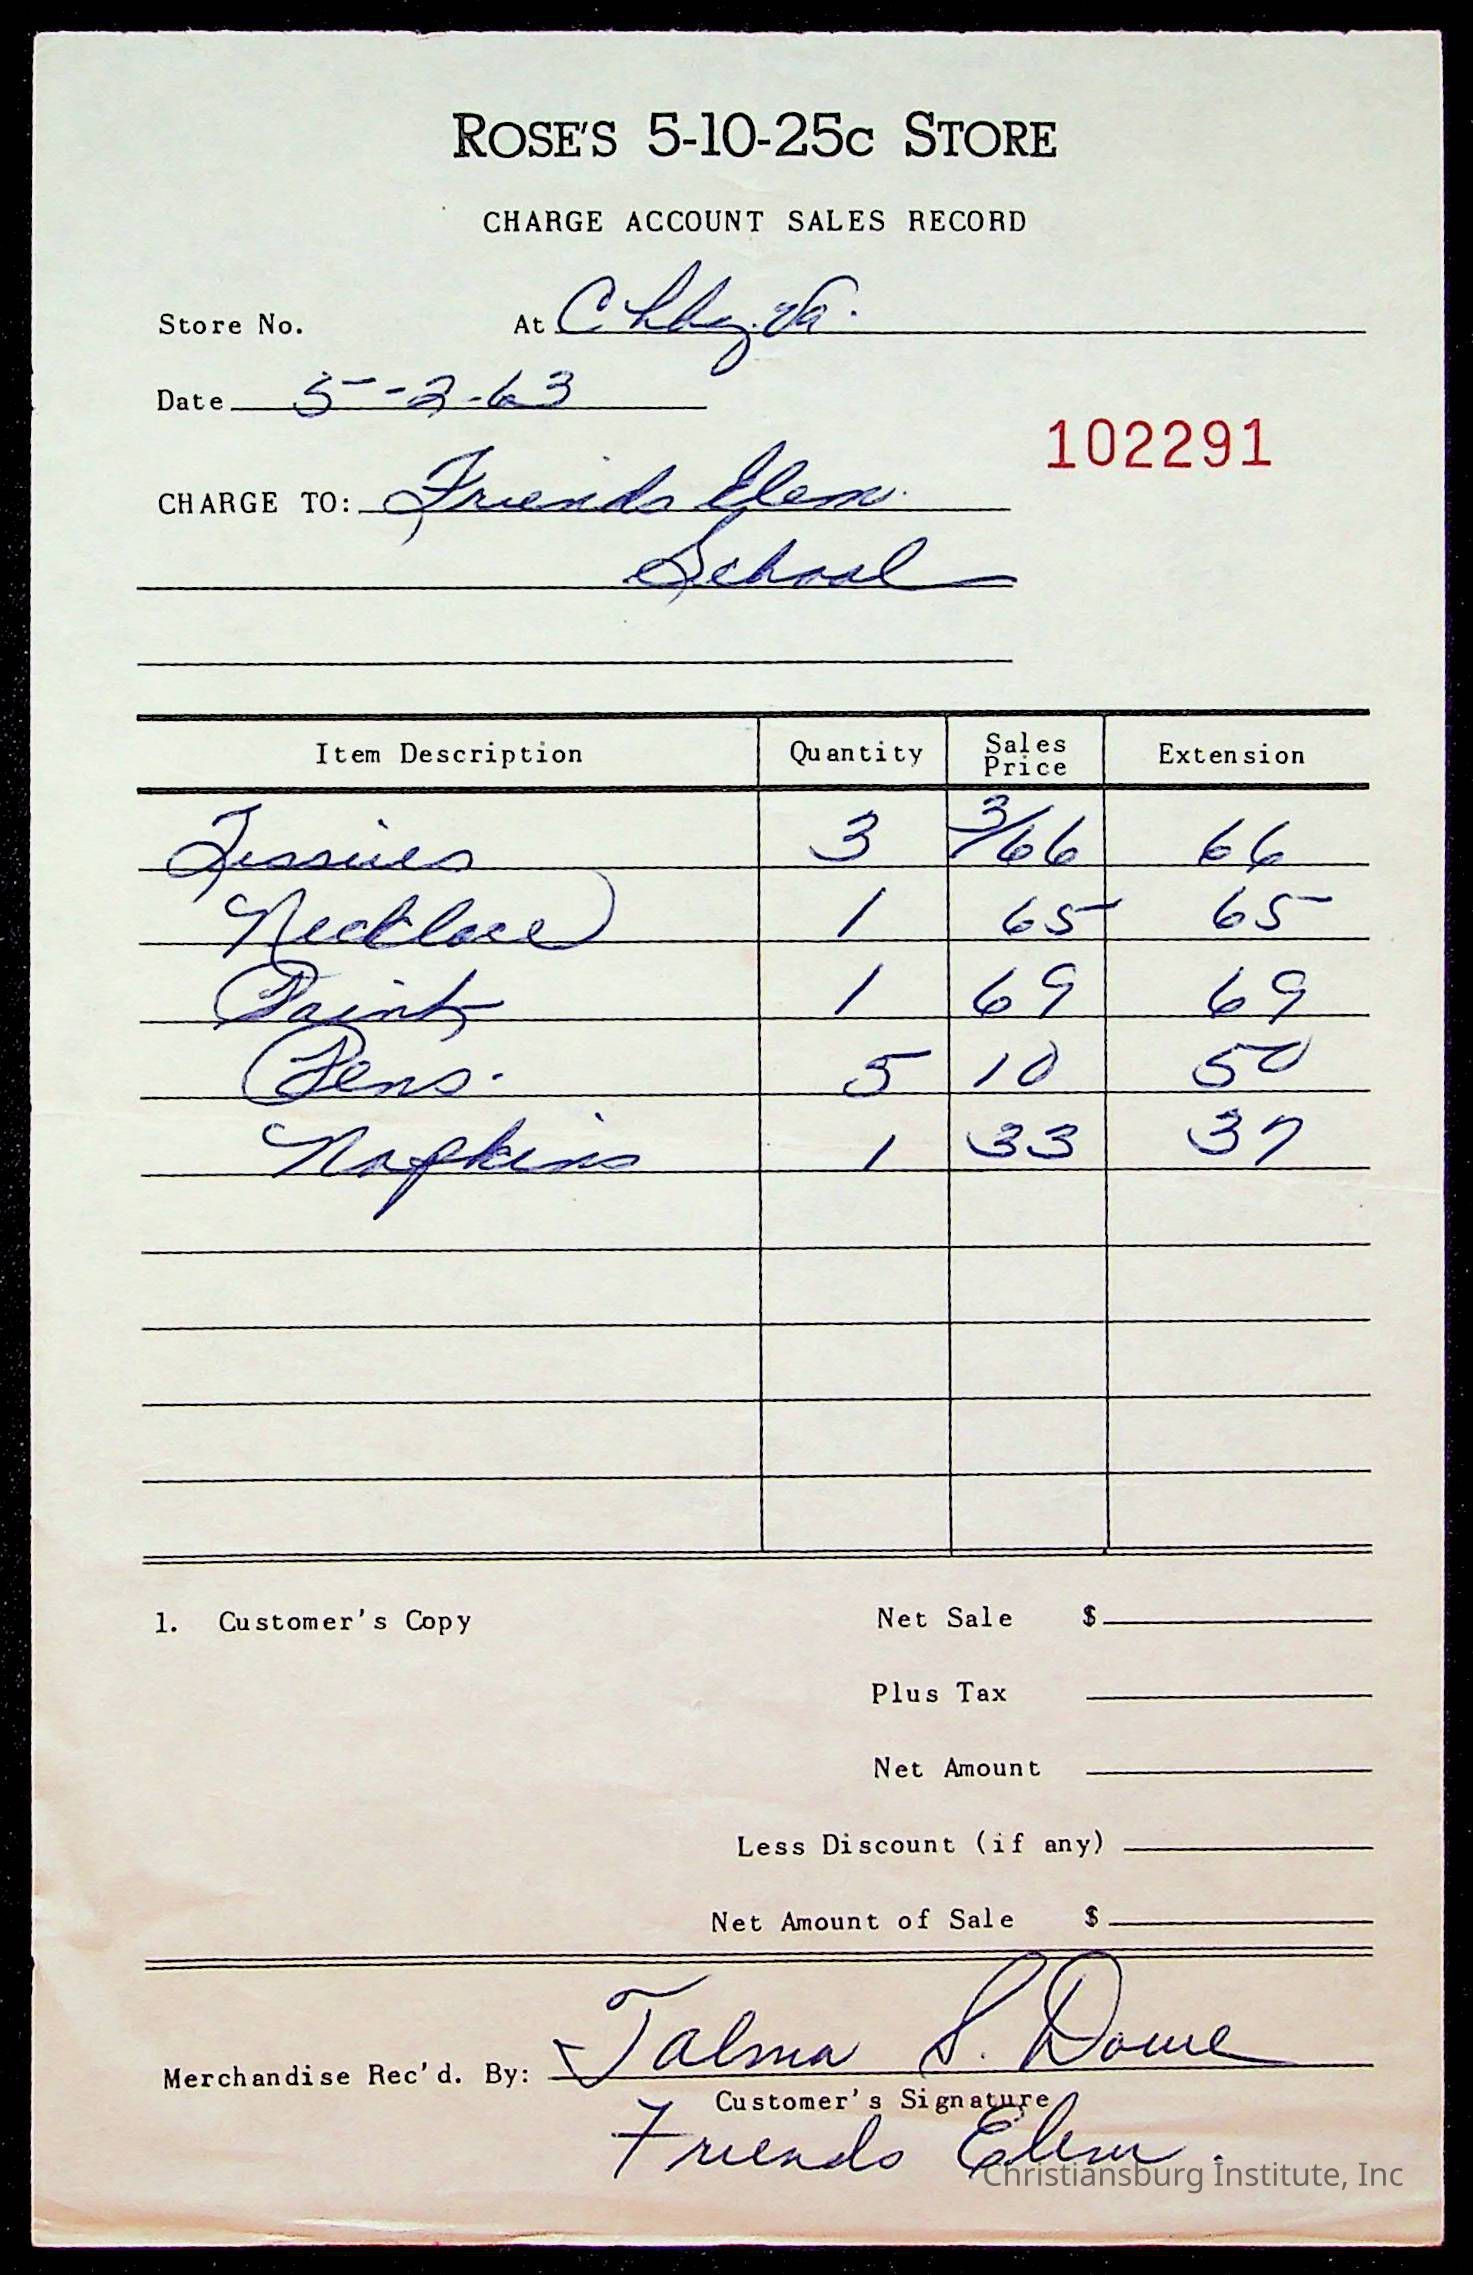 ROSE'S 5-10-25c STORE
CHARGE ACCOUNT SALES RECORD
Store No. At Chbg. Va.
Date 5-2-63
102291
CHARGE TO: Friends Elem.
School
Item Description Quantity Sales Price Extension
Tissues 3 3/66 66
Necklace 1 65 65
Paint 1 69 69
Pens. 5 10 50
Napkins 1 33 37
1. Customer's Copy Net Sale $
Plus Tax
Net Amount
Less Discount (if any)
Net Amount of Sale $
Merchandise Rec'd. By: Talma S. Dowe
Customer's Signature
Friends Elem.
Christiansburg Institute, Inc